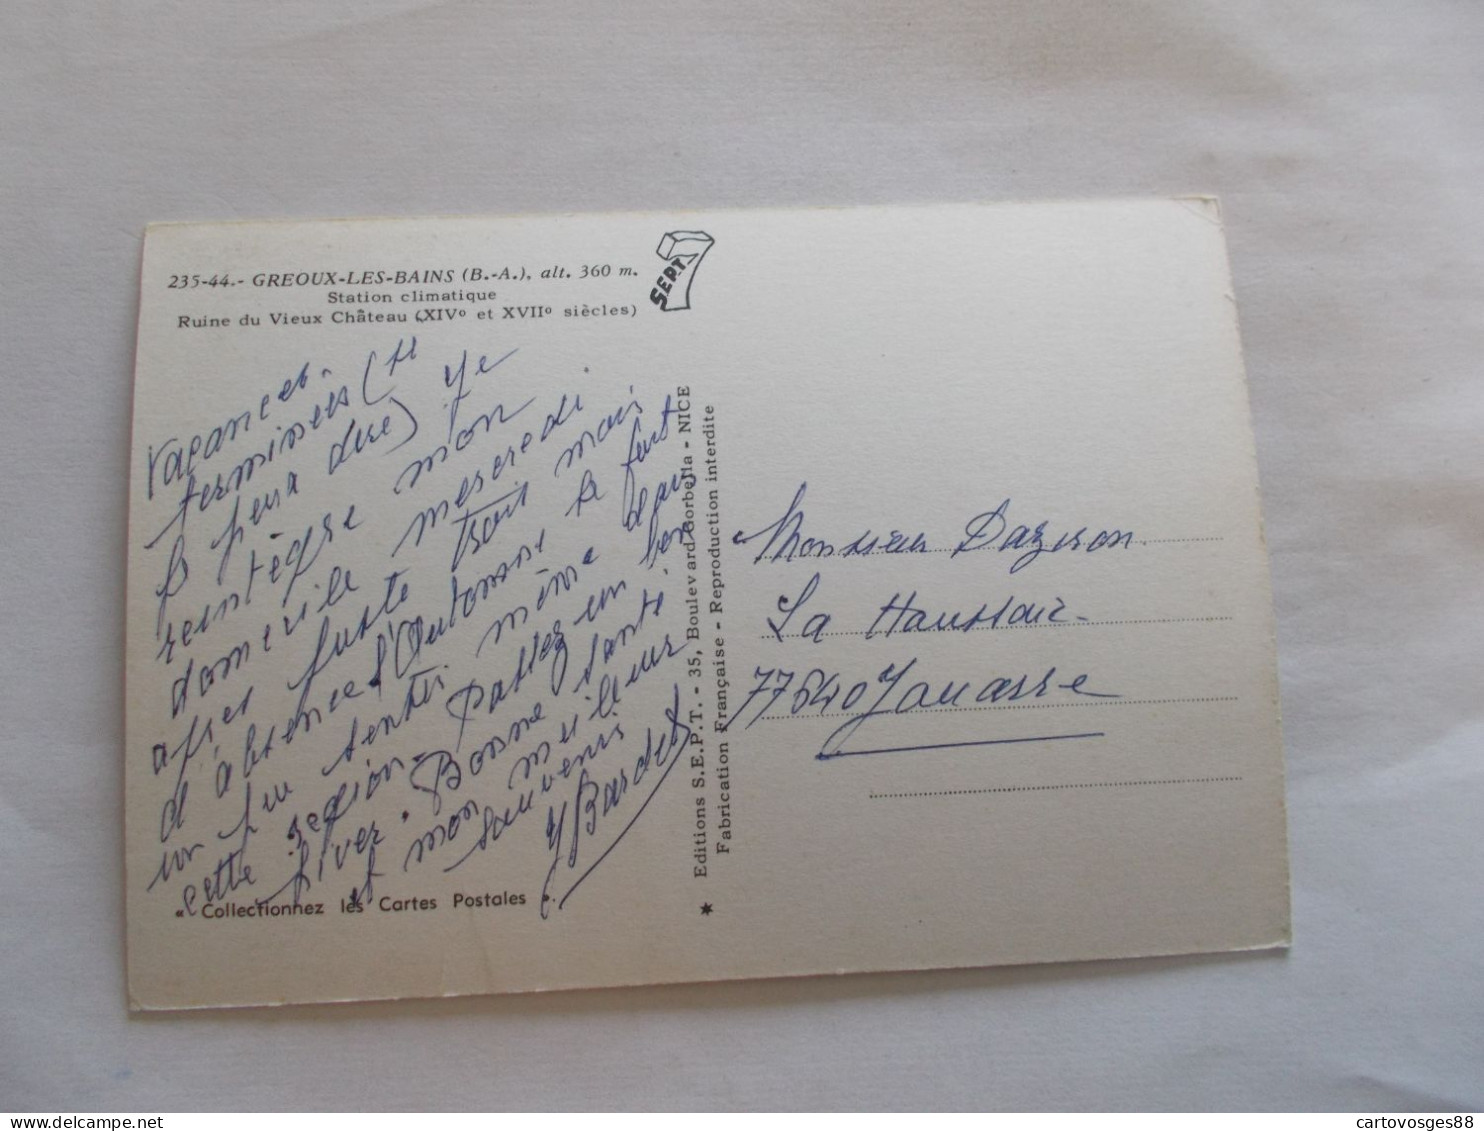 235-44.- GREOUX-LES-BAINS (B.-A.), alt. 360 m.
Station climatique
Ruine du Vieux Château (XIVº et XVIIº siècles)
SEPT.
7
Vacances
terminées (si
je peux dire) Je
reintégre mon
domicile mercredi
après juste trois mois
d'absence l'Automne se fait
un peu sentir même dans
cette région. Passez un bon
hiver. Bonne santé
et mon meilleur
souvenir
Y Bardet
« Collectionnez les Cartes Postales »
Editions S.E.P.T. - 35, Boulevard Gorbella - NICE
Fabrication Française - Reproduction interdite
Monsieur Dazeron
La Haussaie
77540 Jouasse
cartovosges88